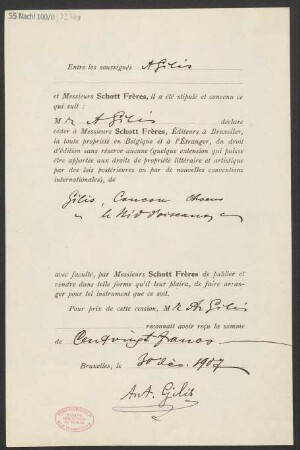 55 Nachl 100/B,
Entre les soussignés A Gilis
et Messieurs Schott Frères, il a été stipulé et convenu ce
qui suit :
M r A Gilis déclare
céder à Messieurs Schott Frères, Éditeurs à Bruxelles,
la toute propriété en Belgique et à l'Étranger, du droit
d'édition sans réserve aucune (quelque extension qui puisse
être apportée aux droits de propriété littéraire et artistique
par des lois postérieures ou par de nouvelles conventions
internationales), de
Gilis,
le Nid d'oiseaux
avec faculté, par Messieurs Schott Frères de publier et
vendre dans telle forme qu'il leur plaira, de faire arranger
pour tel instrument que ce soit.
Pour prix de cette cession, M r A Gilis
reconnait avoir reçu la somme
de Cent vingt francs
Bruxelles, le 30 déc. 1907
Ant. Gilis